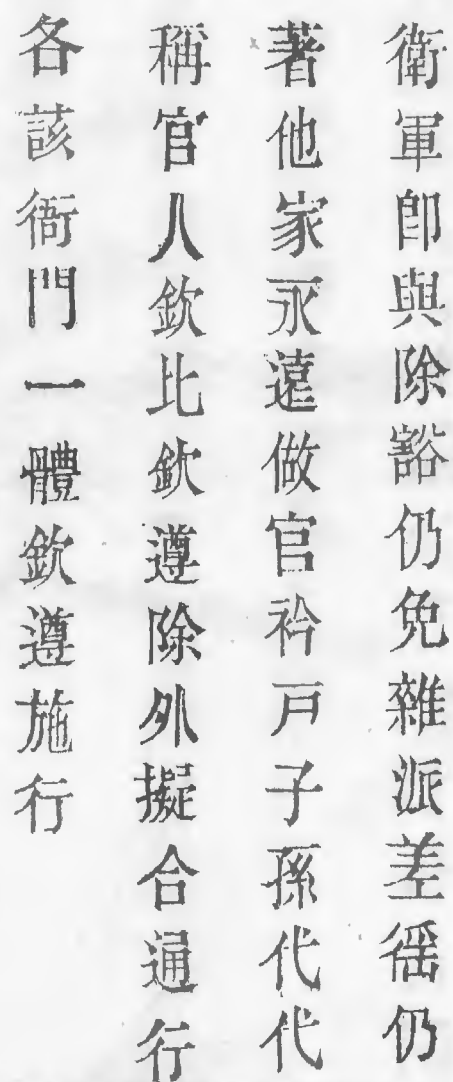 衛軍卽與除豁仍免雜派差徭仍
著他家永遠做官衿戸子孫代代
稱官人欽比欽遵除外擬合通行
各該衙門一體欽遵施行